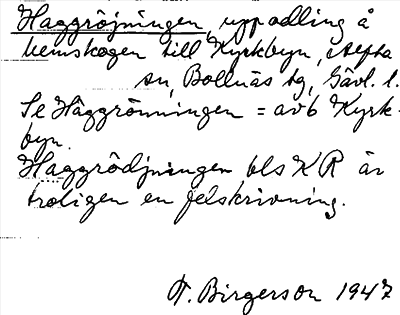 Haggröjningen, uppodling å
hemskogen till Kyrkbyn, Arbrå
sn, Bollnäs tg, Gävl. l.
Se Häggrönningen = avb Kyrk-
byn.
Haggrödjningen bls KR är
troligen en felskrivning.
F. Birgerson 1947